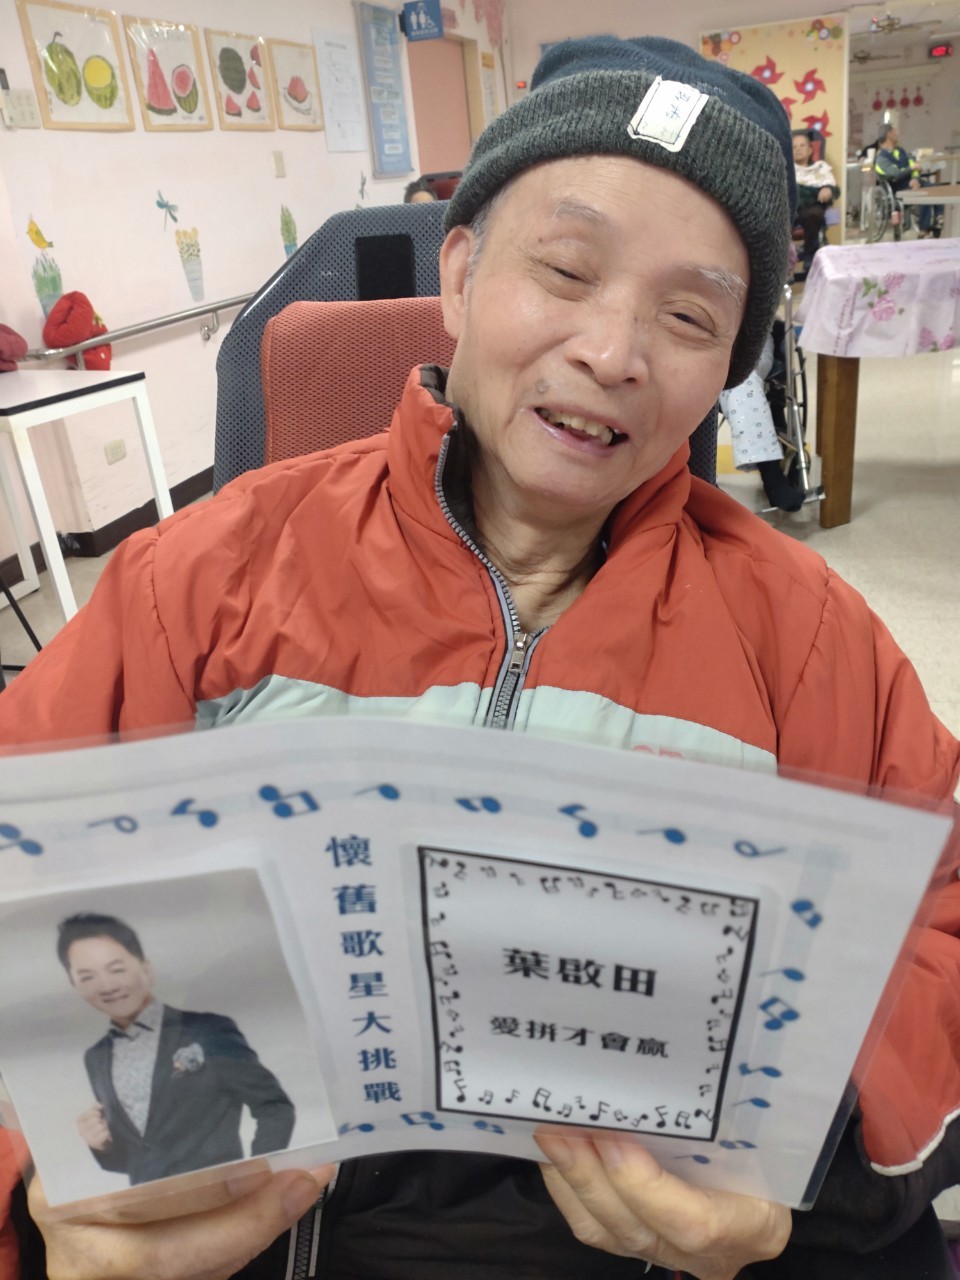 懷舊歌星大挑戰
葉啟田
愛拼才會贏